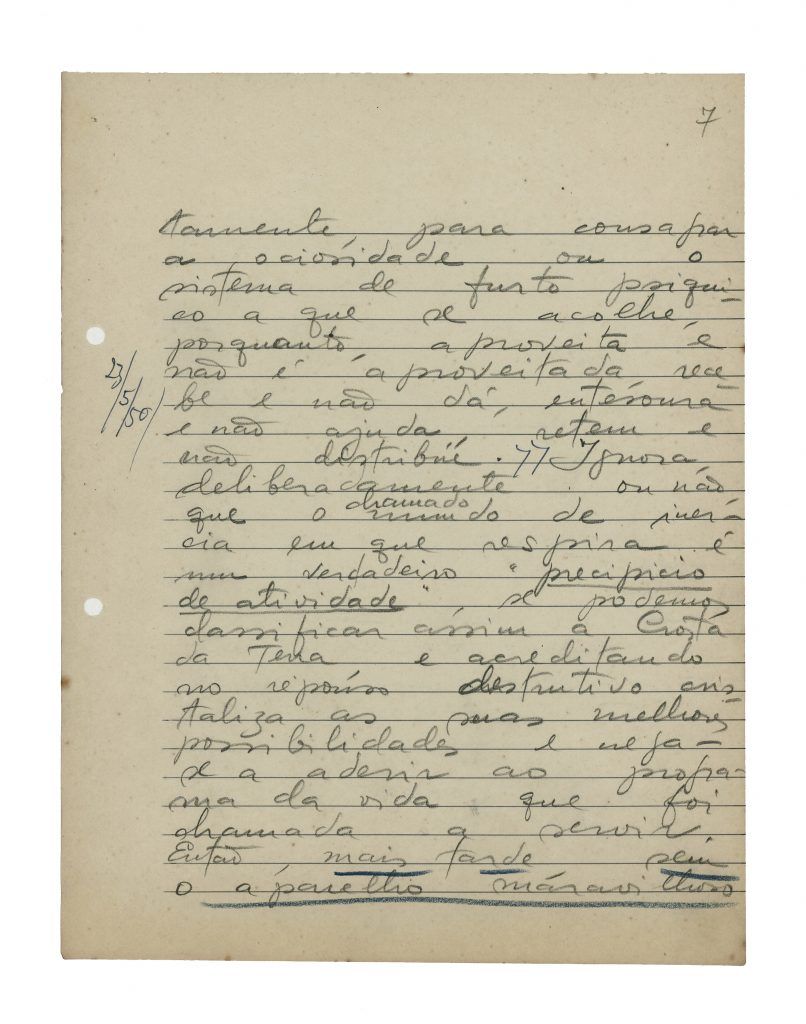 7
tamente, para consagrar
a ociosidade ou o
sistema de furto psiqui-
co a que se acolhe,
porquanto, aproveita e
não é aproveitada, rece-
23/5/50
be e não dá, entesoura
e não ajuda, retem e
não distribúe. 77 Ignora,
deliberadamente ou não
chamado
que o mundo de inér-
cia em que respira é
um verdadeiro "precipicio
de atividade", se podemos
classificar assim a Crosta
da Terra e acreditando
no repouso destrutivo cris
taliza as suas melhores
possibilidades e nega-
se a aderir ao progra-
ma da vida que foi
chamada a servir.
Então, mais tarde sem
o aparelho maravilhoso